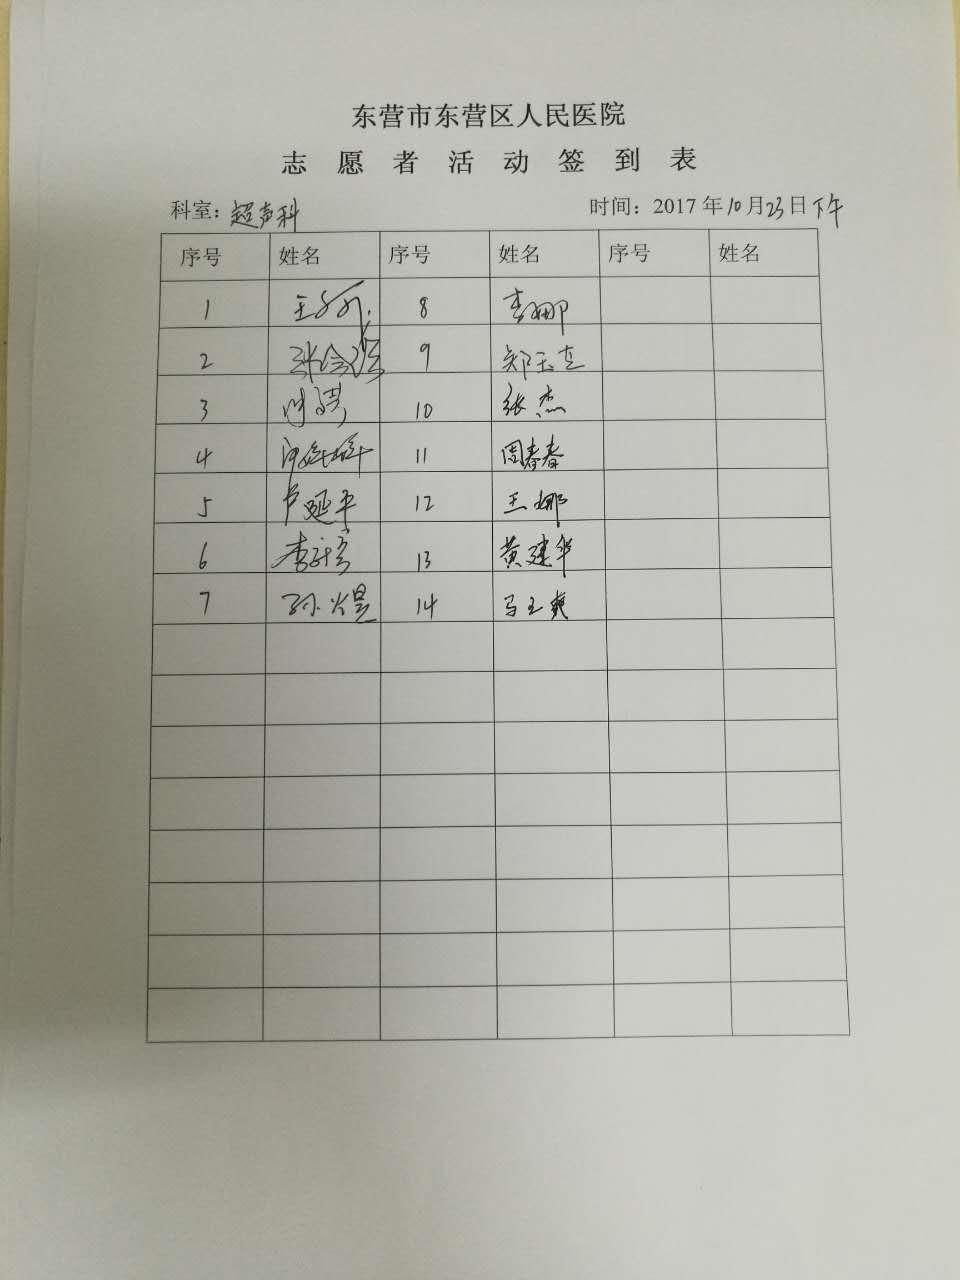 东营市东营区人民医院
志愿者活动签到表
科室：超声科 时间：2017年10月23日下午
序号 姓名 序号 姓名 序号 姓名
1 王 8 李娜
2 张 9 郑玉
3 10 张杰
4 11 周春春
5 卢延平 12 王娜
6 李 13 黄建华
7 孙 14 马玉爽